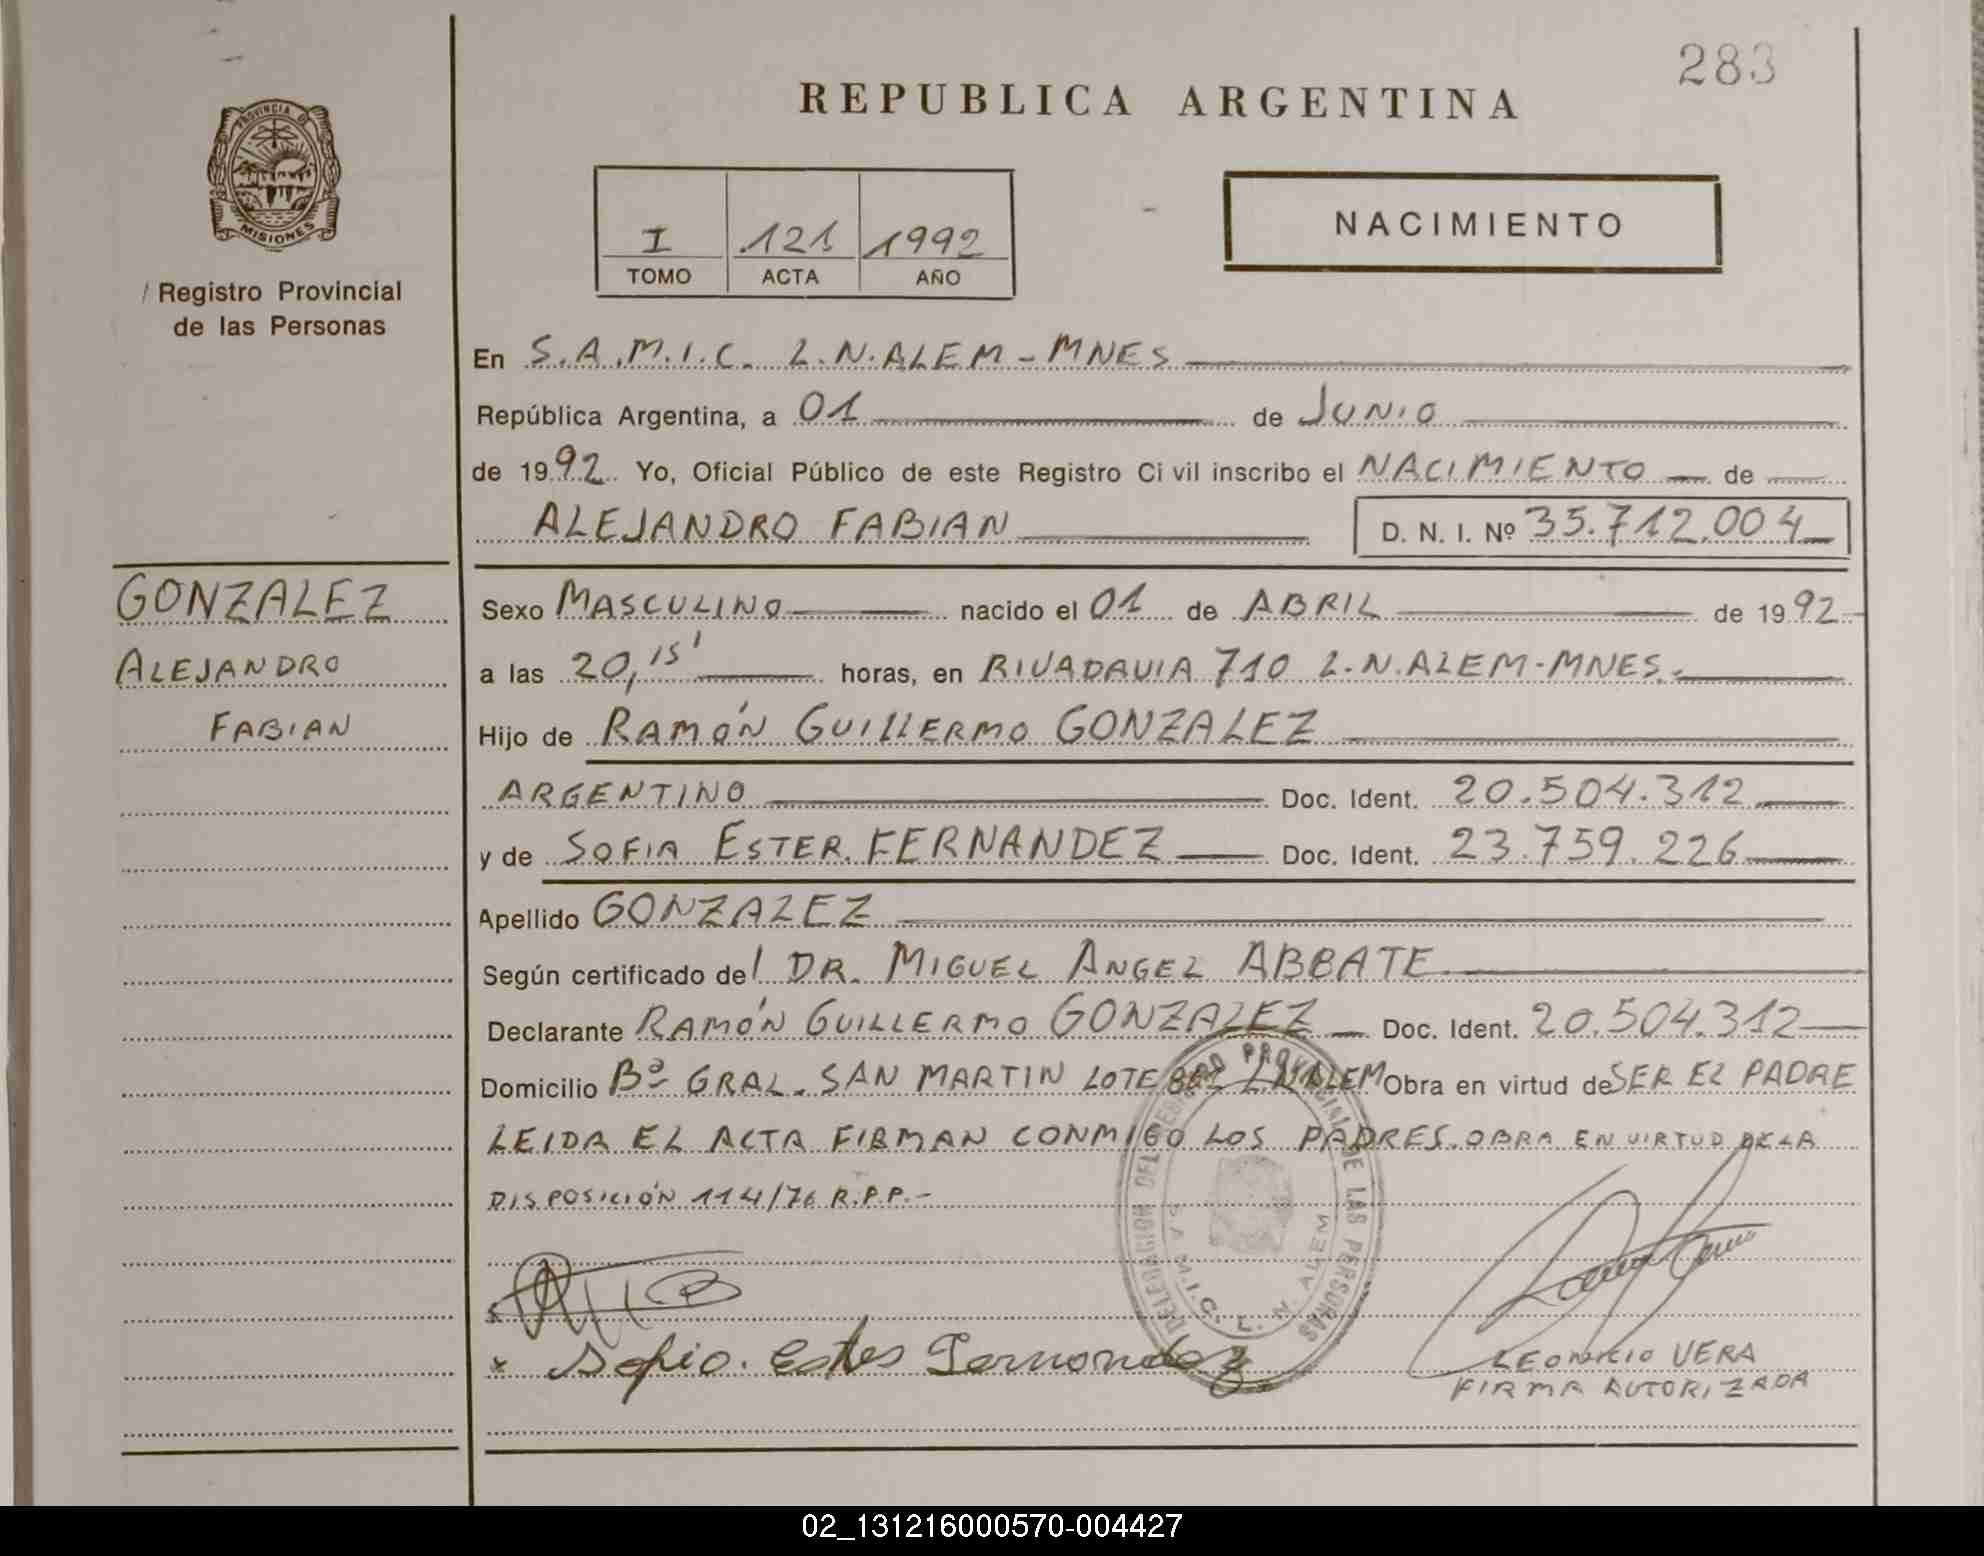 283
REPUBLICA ARGENTINA
PROVINCIA D
MISIONES
Registro Provincial
de las Personas
I 121 1992
TOMO ACTA AÑO
NACIMIENTO
En S.A.M.I.C. L.N.ALEM-MNES
República Argentina, a 01 de JUNIO
de 1992 Yo, Oficial Público de este Registro Civil inscribo el NACIMIENTO de
ALEJANDRO FABIAN D. N. I. Nº 35.712.004
GONZALEZ
ALEJANDRO
FABIAN
Sexo MASCULINO nacido el 01 de ABRIL de 1992
a las 20,15' horas, en RIVADAVIA 710 L.N.ALEM-MNES.
Hijo de RAMÓN GUILLERMO GONZALEZ
ARGENTINO Doc. Ident. 20.504.312
y de SOFIA ESTER FERNANDEZ Doc. Ident. 23.759.226
Apellido GONZALEZ
Según certificado del DR. MIGUEL ANGEL ABBATE
Declarante RAMÓN GUILLERMO GONZALEZ Doc. Ident. 20.504.312
Domicilio Bº GRAL. SAN MARTIN LOTE L.N.ALEM Obra en virtud de SER EL PADRE
LEIDA EL ACTA FIRMAN CONMIGO LOS PADRES. OBRA EN VIRTUD DE LA
DISPOSICIÓN 114/76 R.P.P.-
DELEGACION DEL REGISTRO PROVINCIAL DE LAS PERSONAS
S.A.M.I.C. L. N. ALEM
Sofia Ester Fernandez
LEONICIO VERA
FIRMA AUTORIZADA
02_131216000570-004427